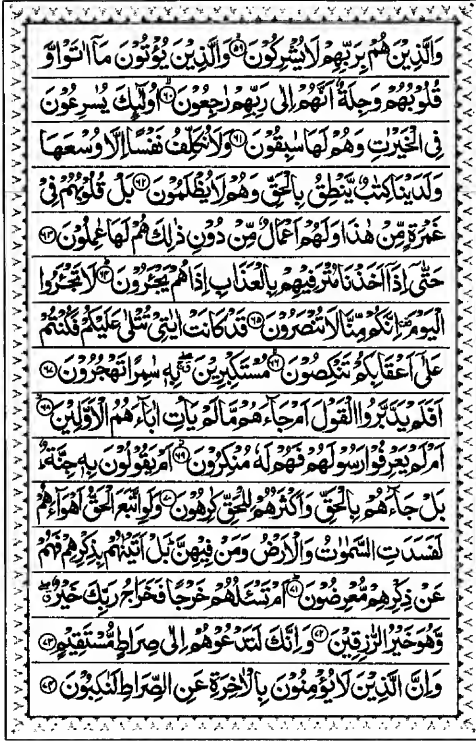 وَالَّذِيْنَ هُمْ بِرَبِّهِمْ لَا يُشْرِكُوْنَ ۙ۵۹ وَالَّذِيْنَ يُؤْتُوْنَ مَاۤ اٰتَوْا وَّ
قُلُوْبُهُمْ وَجِلَةٌ اَنَّهُمْ اِلٰى رَبِّهِمْ رٰجِعُوْنَ ۙ۶۰ اُولٰٓئِكَ يُسٰرِعُوْنَ
فِى الْخَيْرٰتِ وَهُمْ لَهَا سٰبِقُوْنَ ۶۱ وَلَا نُكَلِّفُ نَفْسًا اِلَّا وُسْعَهَا
وَلَدَيْنَا كِتٰبٌ يَّنْطِقُ بِالْحَقِّ وَهُمْ لَا يُظْلَمُوْنَ ۶۲ بَلْ قُلُوْبُهُمْ فِىْ
غَمْرَةٍ مِّنْ هٰذَا وَلَهُمْ اَعْمَالٌ مِّنْ دُوْنِ ذٰلِكَ هُمْ لَهَا عٰمِلُوْنَ ۶۳
حَتّٰۤى اِذَاۤ اَخَذْنَا مُتْرَفِيْهِمْ بِالْعَذَابِ اِذَا هُمْ يَجْئَرُوْنَ ۶۴ لَا تَجْئَرُوا
الْيَوْمَ اِنَّكُمْ مِّنَّا لَا تُنْصَرُوْنَ ۶۵ قَدْ كَانَتْ اٰيٰتِىْ تُتْلٰى عَلَيْكُمْ فَكُنْتُمْ
عَلٰۤى اَعْقَابِكُمْ تَنْكِصُوْنَ ۶۶ مُسْتَكْبِرِيْنَ بِهٖ سٰمِرًا تَهْجُرُوْنَ ۶۷
اَفَلَمْ يَدَّبَّرُوا الْقَوْلَ اَمْ جَآءَهُمْ مَّا لَمْ يَاْتِ اٰبَآءَهُمُ الْاَوَّلِيْنَ ۶۸
اَمْ لَمْ يَعْرِفُوْا رَسُوْلَهُمْ فَهُمْ لَهٗ مُنْكِرُوْنَ ۶۹ اَمْ يَقُوْلُوْنَ بِهٖ جِنَّةٌ
بَلْ جَآءَهُمْ بِالْحَقِّ وَاَكْثَرُهُمْ لِلْحَقِّ كٰرِهُوْنَ ۷۰ وَلَوِ اتَّبَعَ الْحَقُّ اَهْوَآءَهُمْ
لَفَسَدَتِ السَّمٰوٰتُ وَالْاَرْضُ وَمَنْ فِيْهِنَّ بَلْ اَتَيْنٰهُمْ بِذِكْرِهِمْ فَهُمْ
عَنْ ذِكْرِهِمْ مُّعْرِضُوْنَ ۷۱ اَمْ تَسْئَلُهُمْ خَرْجًا فَخَرَاجُ رَبِّكَ خَيْرٌ
وَّهُوَ خَيْرُ الرّٰزِقِيْنَ ۷۲ وَاِنَّكَ لَتَدْعُوْهُمْ اِلٰى صِرَاطٍ مُّسْتَقِيْمٍ ۷۳
وَاِنَّ الَّذِيْنَ لَا يُؤْمِنُوْنَ بِالْاٰخِرَةِ عَنِ الصِّرَاطِ لَنٰكِبُوْنَ ۷۴